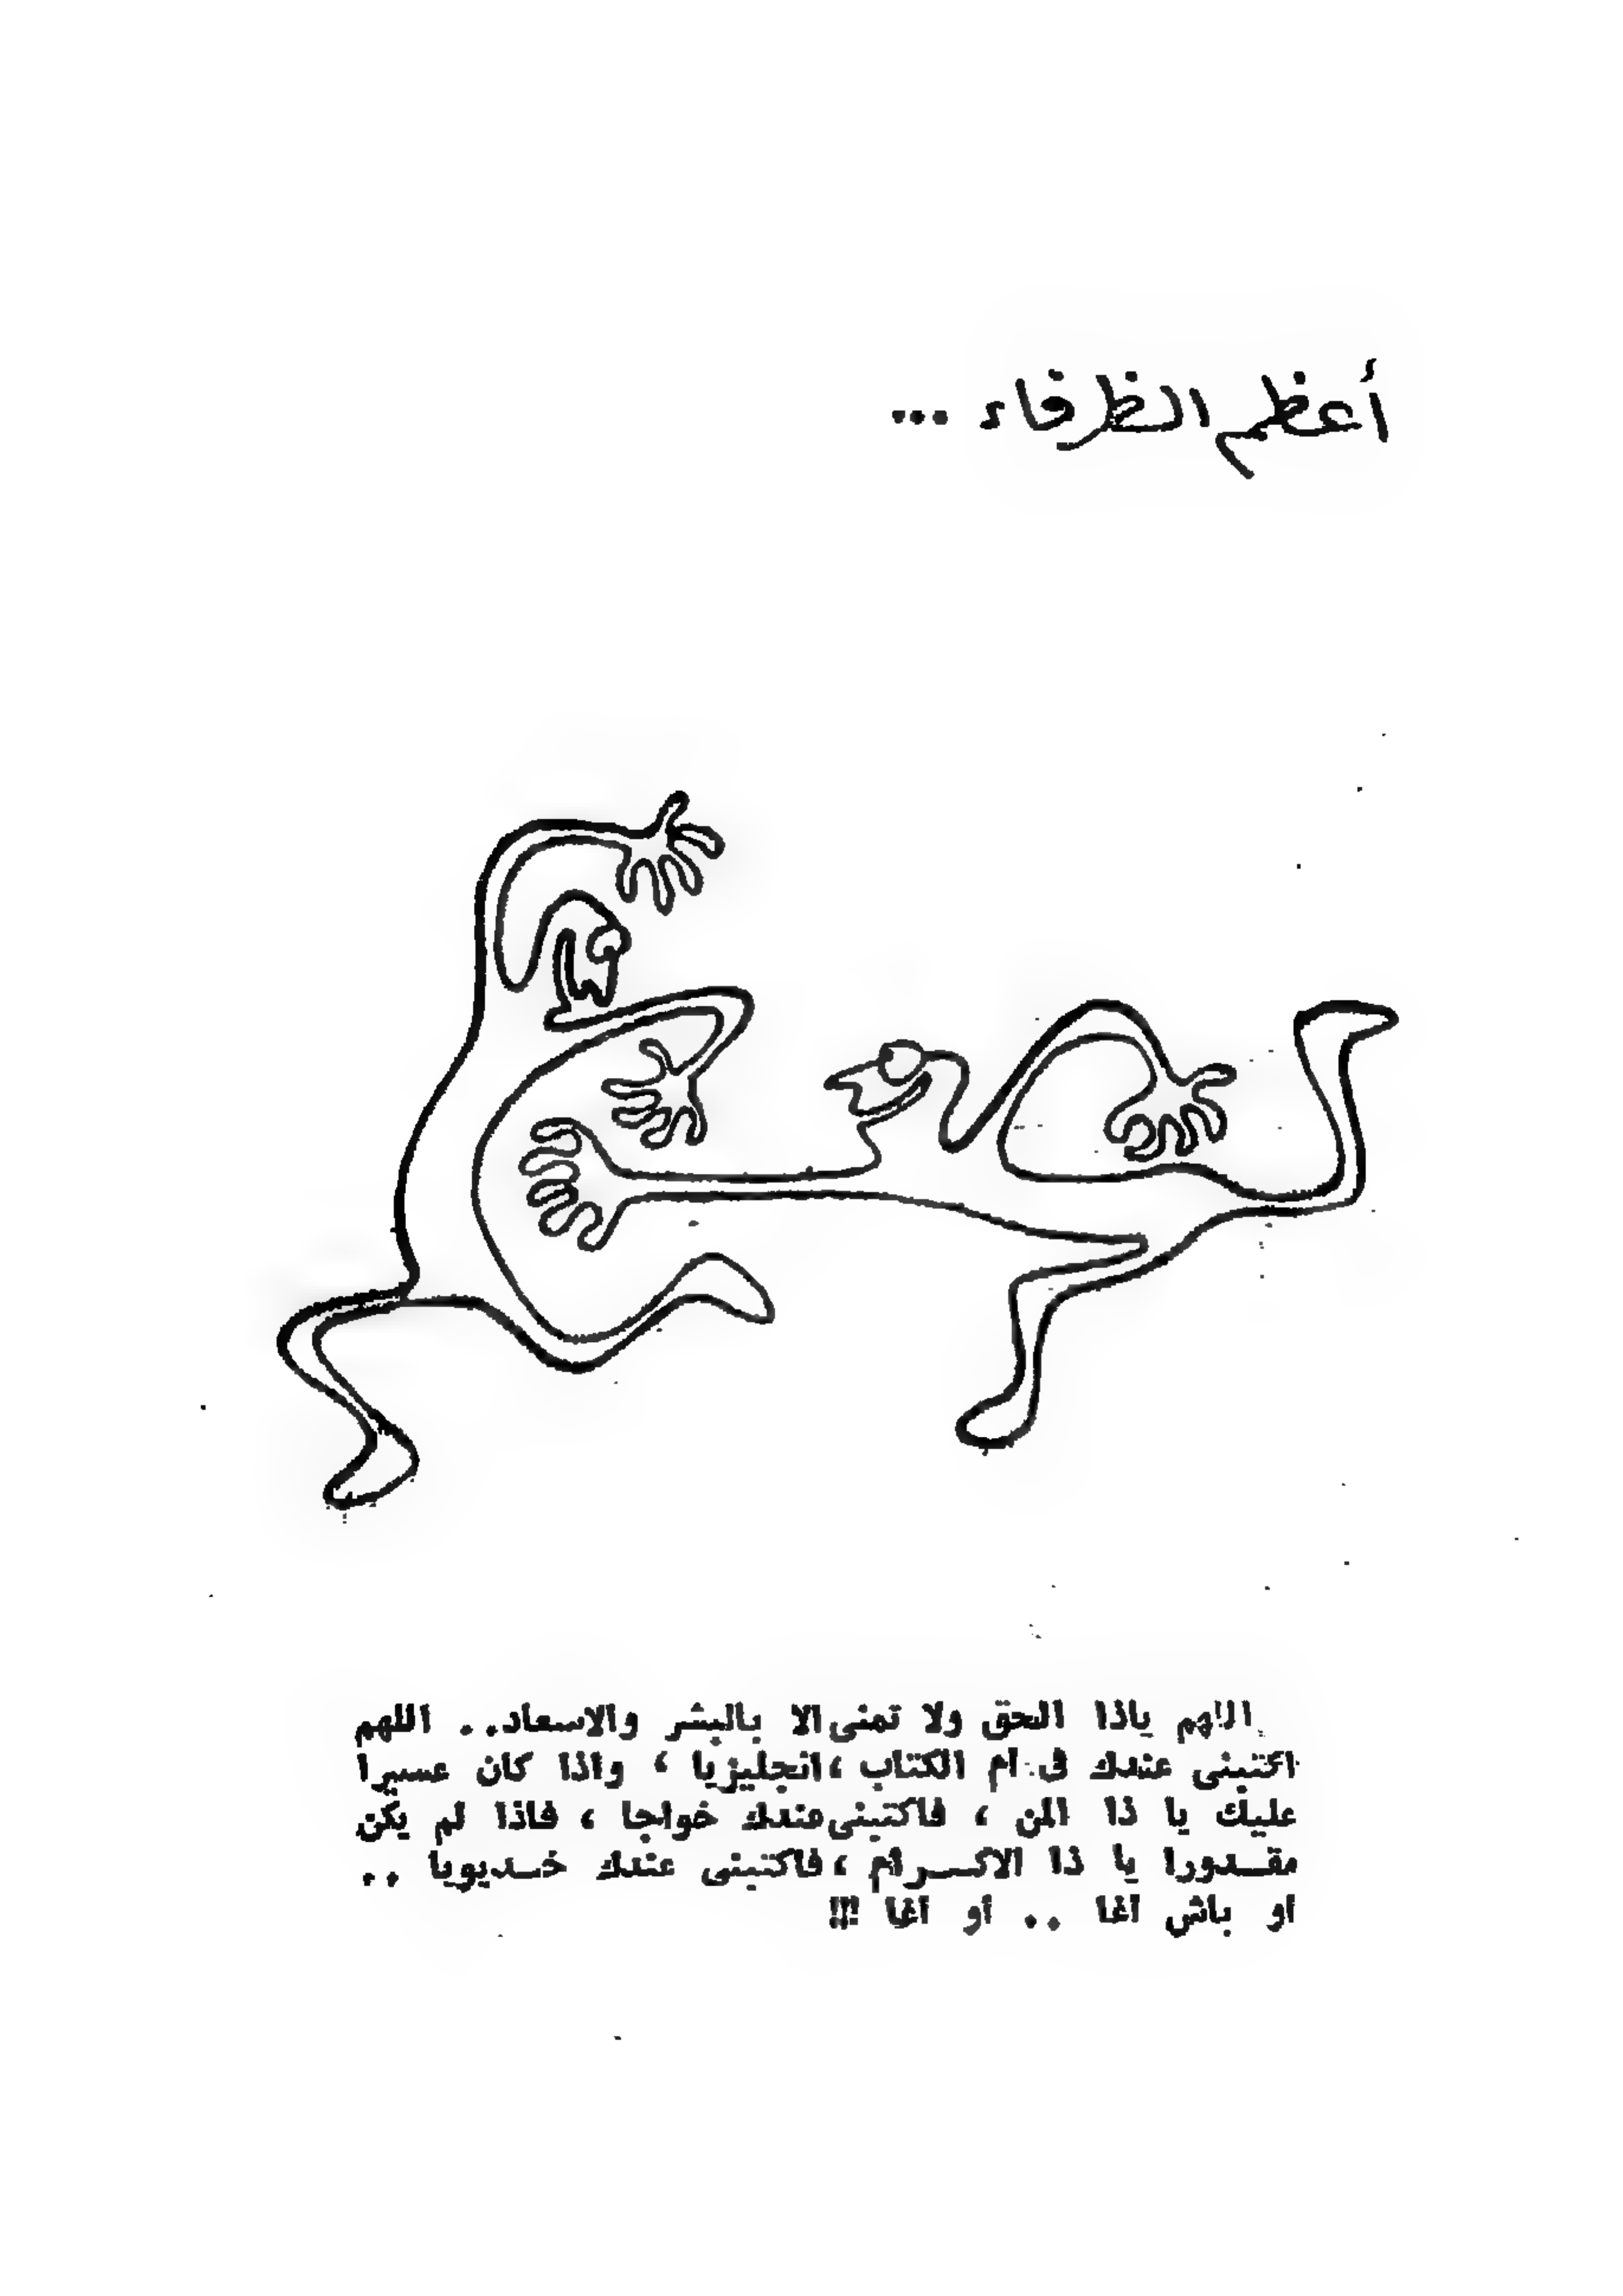 أعظم الظرفاء ...
اللهم ياذا الحق ولا تمنى الا بالبشر والاسعاد.. اللهم
اكتبنى عندك فى أم الكتاب ، انجليزيا ، واذا كان عسيرا
عليك يا ذا المن ، فاكتبنى عندك خواجا ، فاذا لم يكن
مقدورا يا ذا الاكرام ، فاكتبنى عندك خديويا ..
أو باش آغا .. أو آغا !!!